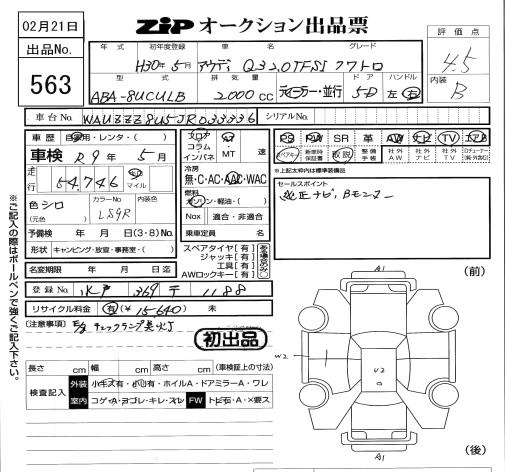 02月21日
ZIP オークション出品票
出品No.
563
評価点
4.5
内装
B
年式 初年度登録 車名 グレード
H30年5月 アウディ Q3 2.0TFSI クワトロ
型式 排気量 ドア ハンドル
ABA-8UCULB 2000cc 元ディーラー・並行 5D 左・右
車台No. WAUZZZ8U5JR033336 シリアルNo.
車歴 自家用・レンタ・( )
車検 R9年5月
走行 54,746 Km マイル
色 シロ カラーNo. LS9R 内装色
(元色)
予備検 年 月 日 (3・8)No.
形状 キャンピング・放宣・事務室・( )
名変期限 年 月 日迄
フロア コラム インパネ AT・MT 速
冷房 無・C・AC・AAC・WAC
燃料 ガソリン・軽油・( )
Nox 適合・非適合
乗車定員 名
スペアタイヤ[有]
ジャッキ[有]
工具[有]
AWロックキー[有]
PS PW SR 革 AW ナビ TV エアB
スペアキー 新車時保証書 取説 整備手帳 社外AW 社外ナビ 社外TV
※上記太枠内は標準装備品
セールスポイント
純正ナビ、Bモニター
登録No. 水戸 369 千 1188
リサイクル料金 有(¥15640) 未
(注意事項) チェックランプ点灯
初出品
長さ cm 幅 cm 高さ cm (車検証上の寸法)
検査記入
外装 小キズ有・小凹有・ホイルA・ドアミラーA・ワレ
室内 コゲA・ヨゴレ・キレ・スレ FW トビ石・A・×要ス
※ご記入の際はボールペンで強くご記入下さい。
(前)
A1
W2
1
U2
A1
(後)